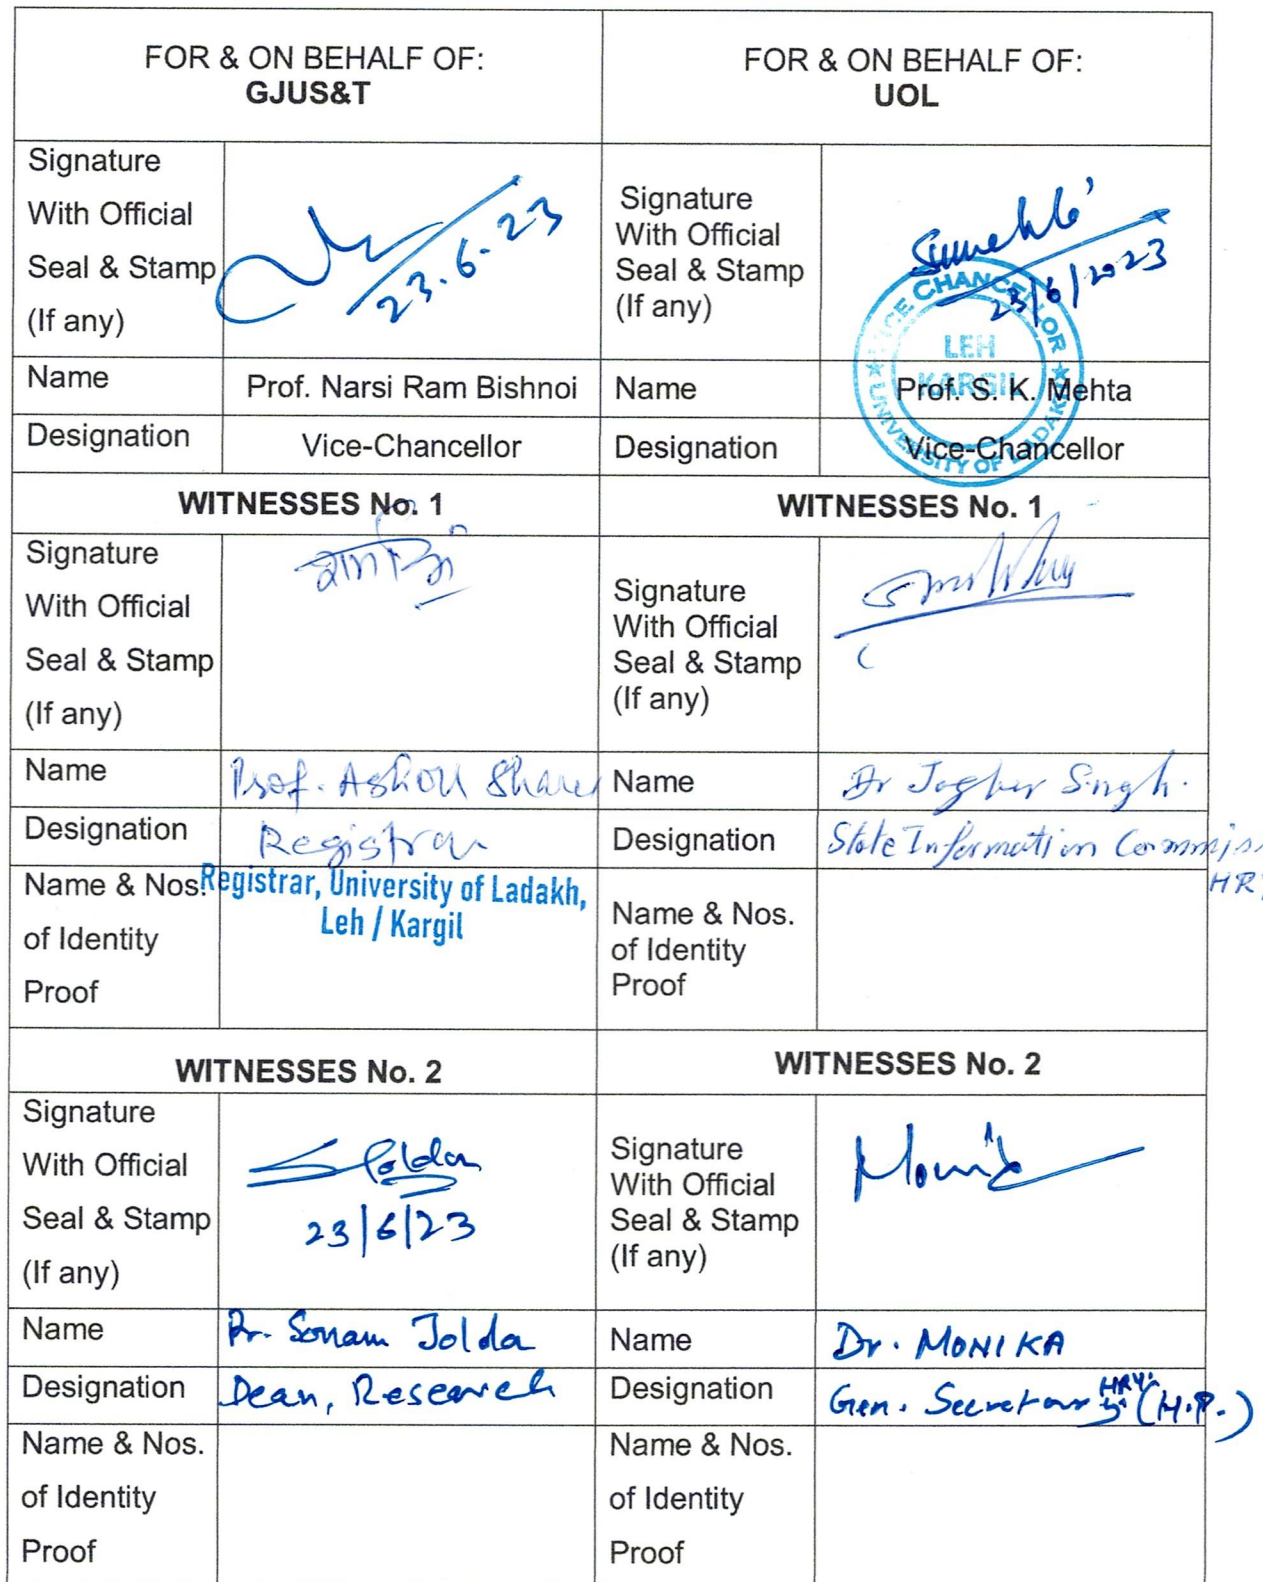 FOR & ON BEHALF OF:
GJUS&T
FOR & ON BEHALF OF:
UOL
Signature
With Official
Seal & Stamp
(If any)
23.6.23
Signature
With Official
Seal & Stamp
(If any)
23/6/2023
VICE CHANCELLOR
UNIVERSITY OF LADAKH
LEH
KARGIL
Name
Prof. Narsi Ram Bishnoi
Name
Prof. S. K. Mehta
Designation
Vice-Chancellor
Designation
Vice-Chancellor
WITNESSES No. 1
WITNESSES No. 1
Signature
With Official
Seal & Stamp
(If any)
Signature
With Official
Seal & Stamp
(If any)
Name
Prof. Ashok
Name
Dr Singh.
Designation
Registrar
Designation
State Information
HRY
Name & Nos.
of Identity
Proof
Registrar, University of Ladakh,
Leh / Kargil
Name & Nos.
of Identity
Proof
WITNESSES No. 2
WITNESSES No. 2
Signature
With Official
Seal & Stamp
(If any)
Jolda
23/6/23
Signature
With Official
Seal & Stamp
(If any)
Monika
Name
Dr. Sonam Jolda
Name
Dr. MONIKA
Designation
Dean, Research
Designation
Gen. Secretary HRY. (H.P.)
Name & Nos.
of Identity
Proof
Name & Nos.
of Identity
Proof